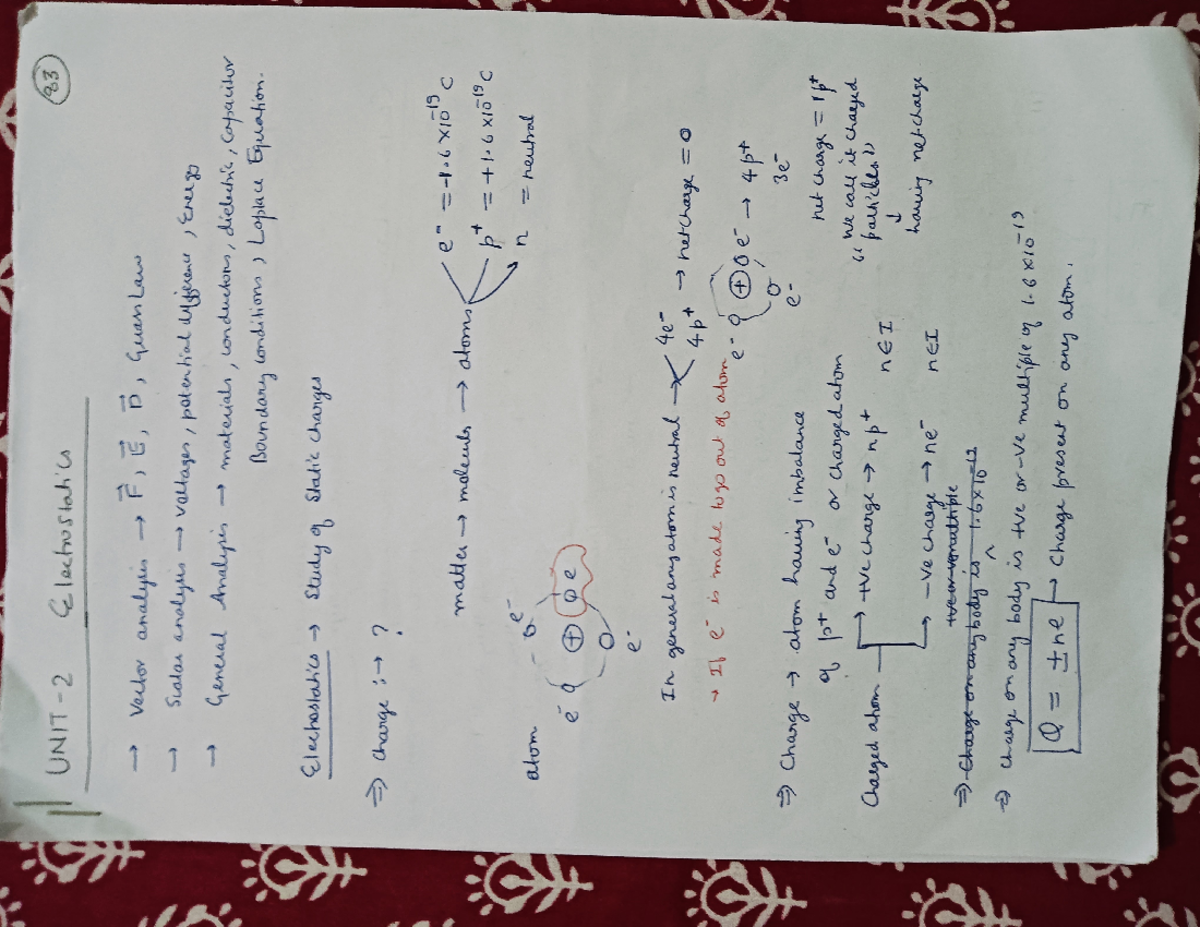 83
UNIT-2 Electrostatics
→ Vector analysis → F, E, D, Guass Law
→ Scalar analysis → voltages, potential difference, Energy
→ General Analysis → materials, conductors, dielectric, capacitor
Boundary conditions, Laplace Equation.
Electrostatics → Study of Static charges
⇒ charge :→ ?
matter → molecules → atoms
e⁻ = -1.6 × 10⁻¹⁹ C
p⁺ = +1.6 × 10⁻¹⁹ C
n = neutral
atom
e⁻ e⁻
+ e
e⁻
In general any atom is neutral → 4e⁻
4p⁺ → net charge = 0
→ If e⁻ is made to go out of atom
e⁻ + e⁻ → 4p⁺
e⁻ 3e⁻
net charge = 1p⁺
"we call it charged
particles"
↓
having net charge
⇒ Charge → atom having imbalance
of p⁺ and e⁻ or charged atom
Charged atom → +ve charge → np⁺ n∈I
→ -ve charge → ne⁻ n∈I
+ve or -ve multiple
⇒ Charge on any body is ^ 1.6 × 10⁻¹⁹
⇒ charge on any body is +ve or -ve multiple of 1.6 × 10⁻¹⁹
Q = ± ne → Charge present on any atom.